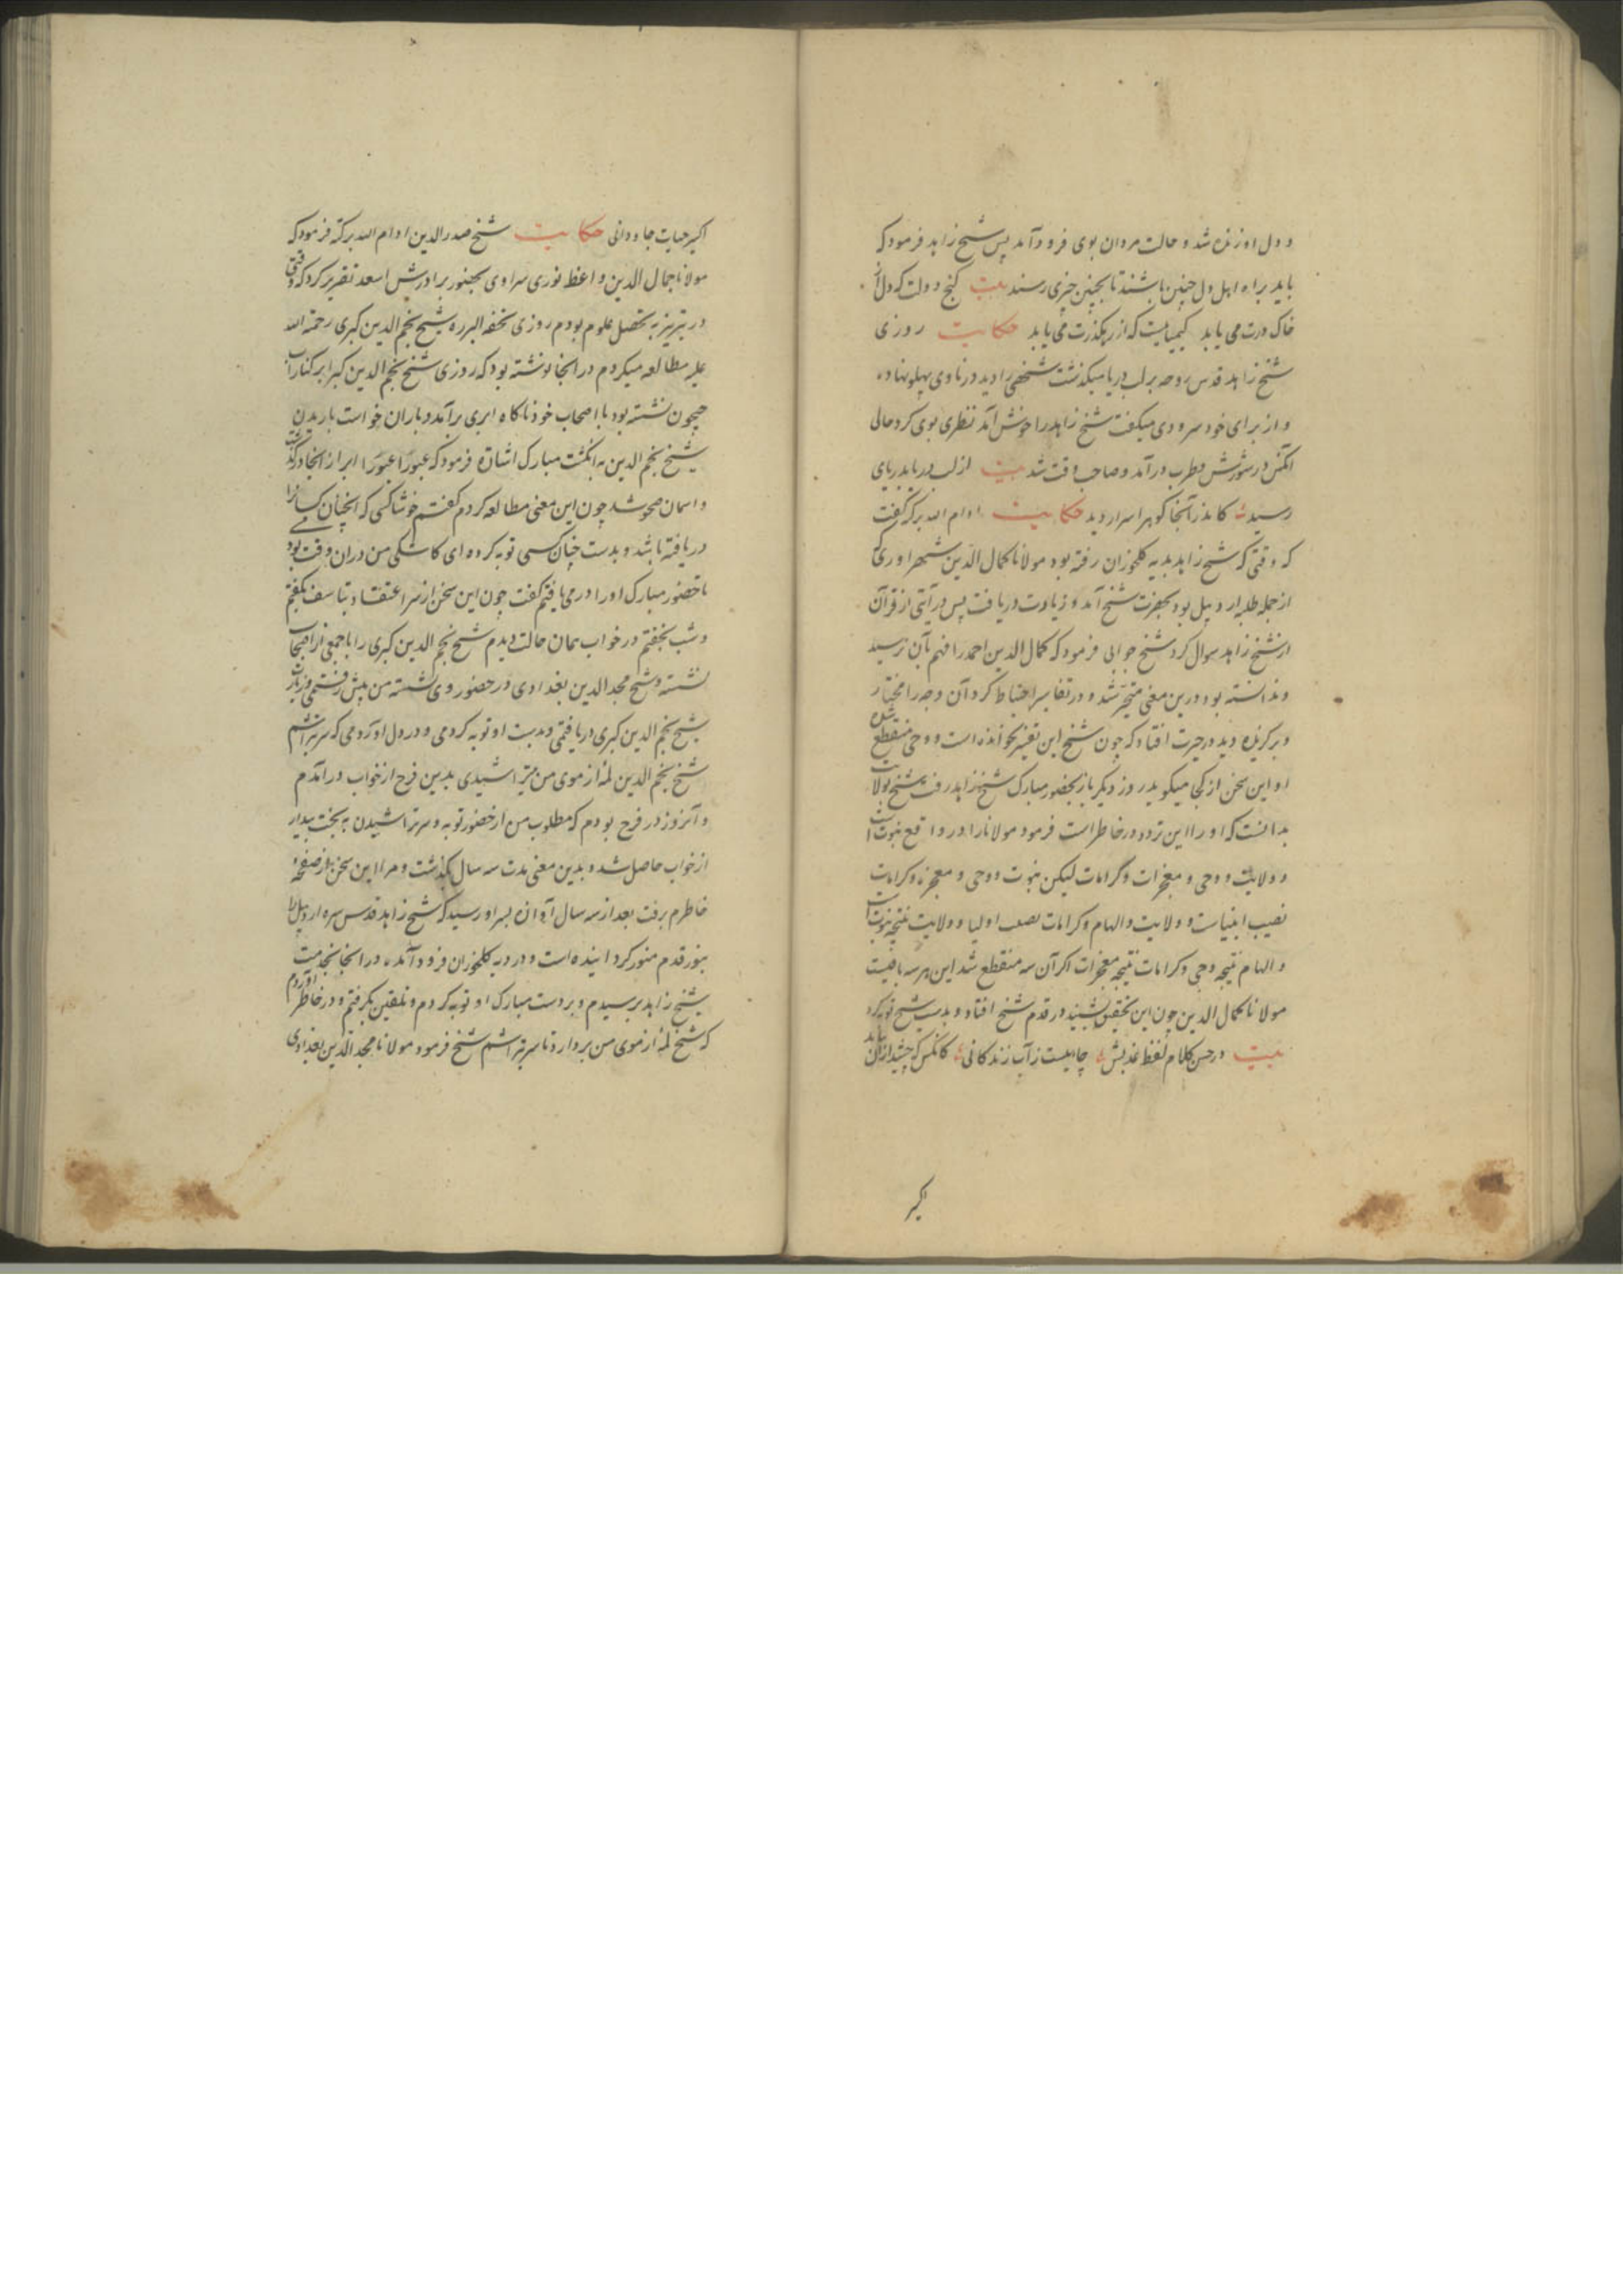 و دل او زنده شد و حالت مردان بوی فرود آمد پس شیخ زاهد فرمود که
باید براه اهل دل چنین باشند تا بچنین چیزی رسند بیت گنج دولت که دل از
خاک درت می یابد کیمیاییست که از رهگذرت می یابد حکایت روزی
شیخ زاهد قدس روحه بر لب دریا میکذشت شخصی را دید در ناوی پهلو نهاده
و از برای خود سرودی میکفت شیخ زاهد را خوش آمد نظری بوی کرد حالی
آنکس در شورش و طرب درآمد و صاحب وقت شد بیت از لب دریا بدریای
رسید کاندر آنجا کوهر اسرار دید حکایت ادام الله برکته گفت
که وقتی که شیخ زاهد بدیه کلخوران رفته بود مولانا کمال الدین شمهراوری که
از جمله طلبه اردبیل بود بحضرت شیخ آمد و زیادت دریافت پس در آیتی از قرآن
از شیخ زاهد سوال کرد شیخ جوابی فرمود که کمال الدین احمد را فهم بآن نرسید
و ندانسته بود درین معنی متحیر شد و در تفاسیر احتیاط کرد آن وجه را مختار
و برکزیده دید در حیرت افتاد که چون شیخ این تفسیر نخوانده است و وحی منقطع شده
او این سخن از کجا میکوید روز دیگر باز بحضور مبارک شیخ زاهد رفت شیخ بولایت
بدانست که او را این تردد در خاطر است فرمود مولانا را در واقع نبوت است
و ولایت و وحی و معجزات و کرامات لیکن نبوت و وحی و معجزه و کرامات
نصیب انبیاست و ولایت و الهام و کرامات نصیب اولیا و ولایت نتیجه نبوتست
و الهام نتیجه وحی و کرامات نتیجه معجزات اکر آن سه منقطع شد این هر سه باقیست
مولانا کمال الدین چون این تحقیق بشنید در قدم شیخ افتاد و بدست شیخ توبه کرد
بیت در حسن کلام لفظ عذبش جاییست ز آب زندکانی کانکس که چشید از آن بیابد
اکسیر
اکسیر حیات جاودانی حکایت شیخ صدرالدین ادام الله برکته فرمود که
مولانا جمال الدین واعظ نوری سراوی بحضور برادرش اسعد تقریر کرد که وقتی
در تبریز به تحصیل علوم بودم روزی تحفه البرره شیخ نجم الدین کبری رحمة الله
علیه مطالعه میکردم در آنجا نوشته بود که روزی شیخ نجم الدین کبرا بر کنار آب
جیحون نشسته بود با اصحاب خود ناکاه ابری برآمد و باران خواست باریدن
شیخ نجم الدین به انکشت مبارک اشارة فرمود که عبورا عبورا ابر از آنجا درگذشت
و اسمان صحو شد چون این معنی مطالعه کردم کفتم خوشا کسی که آنچنان کسانرا
دریافته باشد و بدست چنان کسی توبه کرده ای کاشکی من در آن وقت بودمی
تا حضور مبارک او را در می یافتم کفت چون این سخن از سر اعتقاد و تاسف بگفتم
و شب بخفتم در خواب همان حالت دیدم شیخ نجم الدین کبری را با جمعی از اصحاب
نشسته و شیخ مجد الدین بغدادی در حضور وی نشسته من پیش رفتمی و زیارت
شیخ نجم الدین کبری دریافتمی و بدست او توبه کردمی و در دل آوردمی که سر بتراشم
شیخ نجم الدین لمه از موی من بتراشیدی بدین فرح از خواب درآمدم
و آنروز در فرح بودم که مطلوب من از حضور توبه و سر تراشیدن به بخت بیدار
از خواب حاصل شد و بدین معنی مدت سه سال بکذشت و مرا این سخن از صفحه
خاطرم برفت بعد از سه سال آوازه بسراو رسید که شیخ زاهد قدس سره اردبیل را
بنور قدم منور کردانیده است و در دیه کلخوران فرود آمده در آنجا بخدمت
شیخ زاهد برسیدم و بر دست مبارک او توبه کردم و تلقین بگرفتم و در خاطر آوردم
که شیخ لمه از موی من بردارد تا سر بتراشم شیخ فرمود مولانا مجد الدین بغدادی